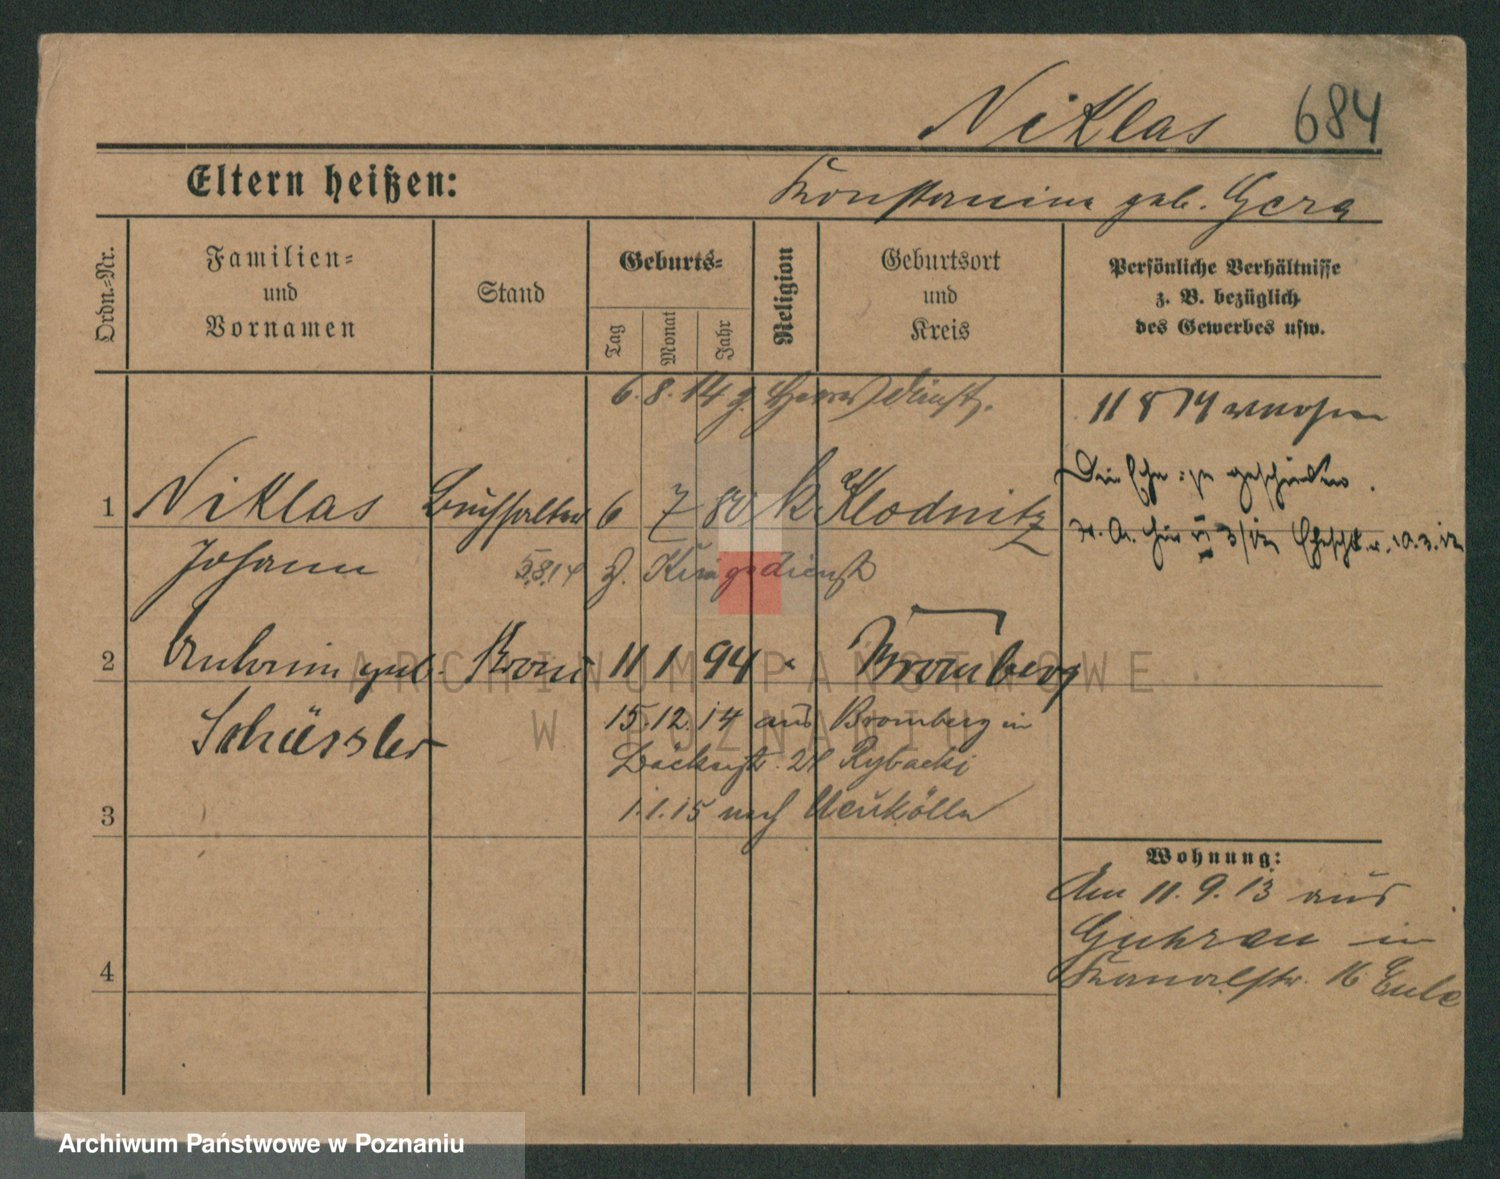 Niklas 684
Eltern heißen:
Konstanina geb. Gera
Ordn.=Nr.
Familien=
und
Vornamen
Stand
Geburts=
Tag
Monat
Jahr
Religion
Geburtsort
und
Kreis
Persönliche Verhältnisse
z. B. bezüglich
des Gewerbes usw.
6. 8. 14 z. Heeresdienst.
11 8 14
1 Niklas Buchhalter 6 7 80 k. Klodnitz
Die Ehe ist geschieden.
Johann
5.8.14 z. Kriegsdienst
2 geb. Brom 11 1 94 Bromberg
Schüssler
15. 12. 14 aus Bromberg in
Bäckerstr. 21 Rybacki
3 1. 1. 15 nach Neukölln
Wohnung:
Am 11. 9. 13 aus
Guhrau in
Kanalstr. 16 Eule
4
ARCHIWUM PAŃSTWOWE
W POZNANIU
Archiwum Państwowe w Poznaniu